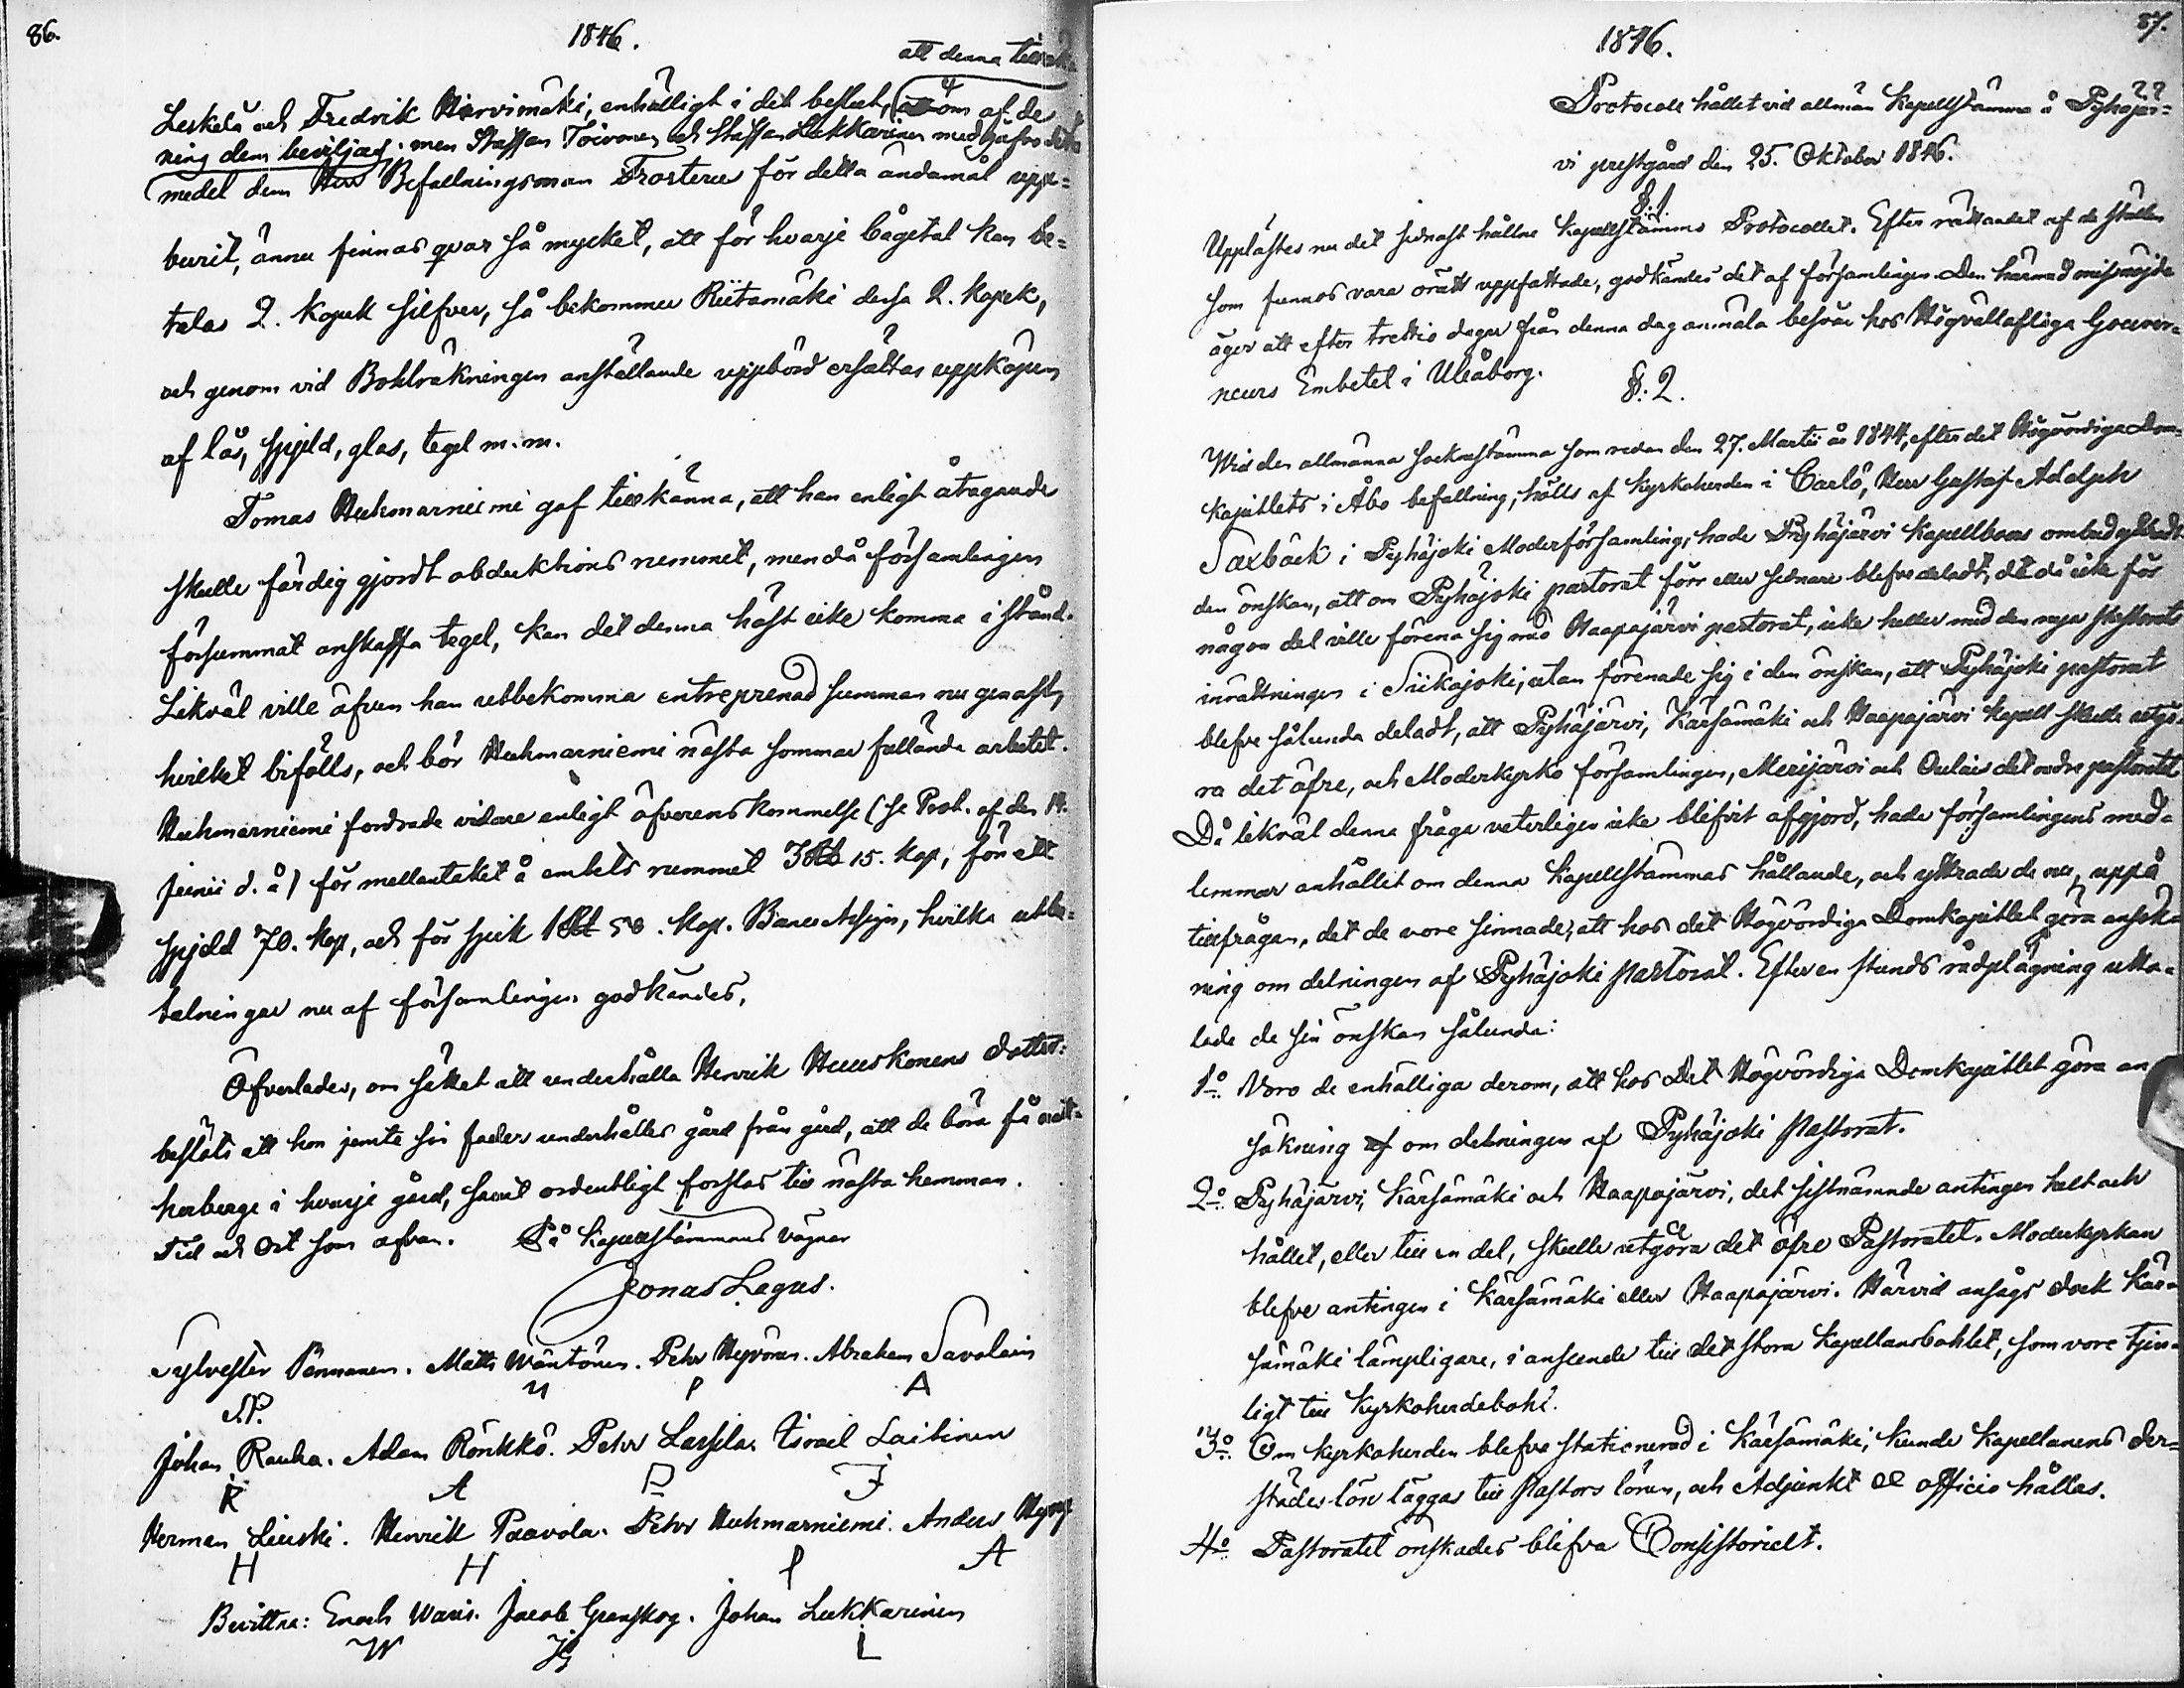 86.
1846.
att denna
Leskelä och Fredrik Hirvimäki, enhälligt i det beslut, om af de
ning dem beviljas; men Staffan Toivonen och Staffan Lukkarinen medgåfvo detta
medel dem Herr Befallningsman Frosterus för detta ändamål upp-
burit, ännu finnas qvar så mycket, att för hvarje bågetal kan be-
talas 2. Kopek silfver, så bekommer Riitamäki dessa 2. Kopek,
och genom vid Bohlräkningen anställande uppbörd ersättas uppköpen
af lås, spjeld, glas, tegel m.m.
Tomas Huhmarniemi gaf tillkänna, att han enligt åtagande
skulle färdig gjordt obduktions rummet, men då församlingen
försummat anskaffa tegel, kan det denna höst icke komma i stånd.
Likväl ville äfven han utbekomma entreprenad summan nu genast,
hvilket bifölls, och bör Huhmarniemi nästa sommar fullända arbetet.
Huhmarniemi fordrade vidare enligt öfverenskommelse (se Prot. af den 14.
Junii d. å.) för mellantaket å embets rummet 3 Rb 15. Kop, för ett
spjeld 70. Kop, och för spik 1 Rb 50. Kop. Banco Assign, hvilka utbe-
talningar nu af församlingen godkändes.
Öfverlades, om sättet att underhålla Henrik Huuskonens dotter:
beslöts att hon jemte sin fader underhålles gård från gård, att de böra få natt-
herberge i hvarje gård, samt ordentligt forslas till nästa hemman.
Tid och Ort som ofvan. På Kapellstämmans vägnar
Jonas Lagus.
Sylvester Pennanen. Matts Wäntönen. Petter Hyvönen. Abraham Savolain
S.P. M P A
Johan Rauha. Adam Rönkkö. Petter Lassila. Israel Laitinen
R A P I
Herman Liuski. Henrik Paavola. Petter Huhmarniemi. Anders
H H P A
Bevittna: Enoch Waris. Jacob Granskog. Johan Lukkarinen
W JG L
87.
1846.
Protocoll hållet vid allmän Kapellstämma å Pyhäjär-
vi prestgård den 25. Oktober 1846.
§. 1.
Upplästes nu det sednast hållne Kapellstämmo Protocollet. Efter rättandet af de ställen
som funnos vara orätt uppfattade, godkändes det af församlingen. Den härmed missnöjde
äger att efter trettio dagar från denna dag anmäla besvär hos Högvällofliga Gouver-
neurs Embetet i Uleåborg.
§. 2.
Wid den allmänna sockenstämma som redan den 27. Martii år 1844, efter det Högvördiga Dom-
kapitlets i Åbo befallning, hölls af Kyrkoherden i Carlö, Herr Gustaf Adolph
Saxbäck i Pyhäjoki Moderförsamling, hade Pyhäjärvi Kapellboas ombud yttradt
den önskan, att om Pyhäjoki pastorat förr eller sednare blefve deladt, det då icke för
någon del ville förena sig med Haapajärvi pastorat, icke heller med den nya Pastorats
inrättningen i Siikajoki, utan förenade sig i den önskan, att Pyhäjoki pastorat
blefve sålunda deladt, att Pyhäjärvi, Kärsämäki och Haapajärvi Kapell skulle utgö-
ra det öfre, och Moderkyrko församlingen, Merijärvi och Oulais det nedre pastoratet.
Då likväl denna fråga veterligen icke blifvit afgjord, hade församlingens med-
lemmar anhållit om denna Kapellstämmas hållande, och yttrade de nu, uppå
tillfrågan, det de vore sinnade, att hos det Högvördiga Domkapitlet göra ansök-
ning om delningen af Pyhäjoki Pastorat. Efter en stunds rådplägning utta-
lade de sin önskan sålunda:
1:o Voro de enhälliga derom, att hos Det Högvördiga Domkapitlet göra an
sökning om delningen af Pyhäjoki Pastorat.
2:o Pyhäjärvi, Kärsämäki och Haapajärvi, det sistnämnde antingen helt och
hållet, eller till en del, skulle utgöra det öfre Pastoratet. Moderkyrkan
blefve antingen i Kärsämäki eller Haapajärvi. Härvid ansågs dock Kär-
sämäki lämpligare, i anseende till det stora Kapellansbohlet, som vore tjen-
ligt till Kyrkoherdebohl.
3:o Om Kyrkoherden blefve stationerad i Kärsämäki, kunde Kapellanens der-
städes lön läggas till Pastors lönen, och Adjunkt ex officio hållas.
4:o Pastoratet önskades blifva Consistorielt.